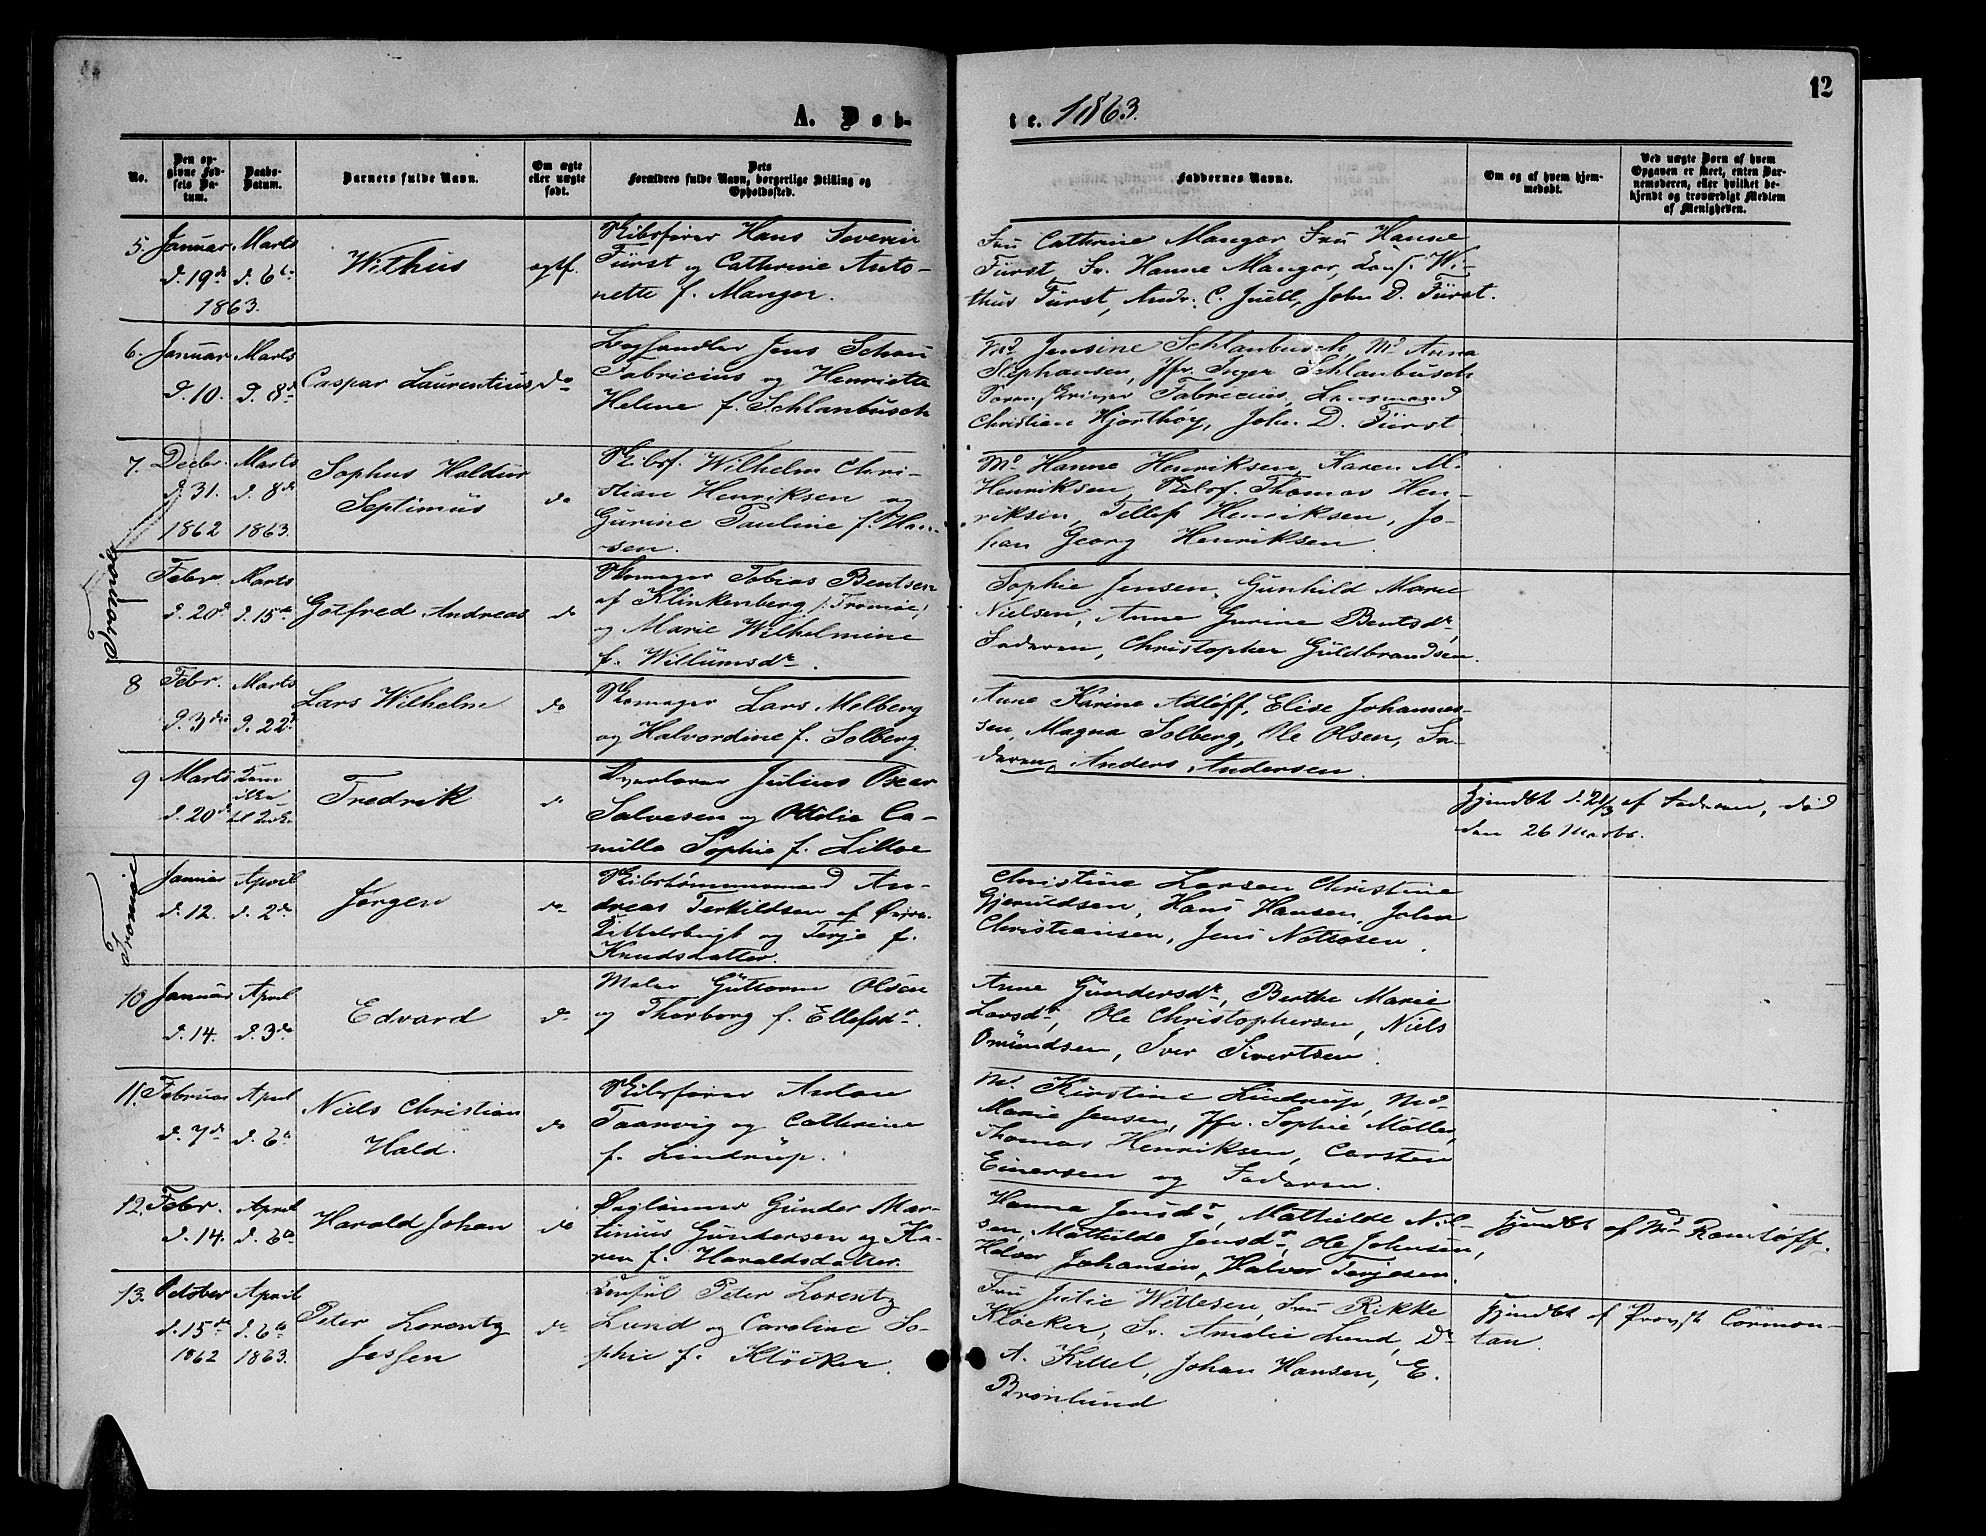 12
A. Døb-
te. 1863.
No.
Den op-
givne Fød-
sels Da-
tum.
Daabs-
Datum.
Barnets fulde Navn.
Om ægte
eller uægte
født.
Dets
Forældres fulde Navn, borgerlige Stilling og
Opholdssted.
Faddernes Navne.
Om og af hvem hjem-
medøbt.
Ved uægte Børn af hvem
Opgaven er skeet, enten Bar-
nemoderen, eller hvilket be-
kjendt og troværdigt Medlem
af Menigheden.
5. Januar d. 19de 1863.
Marts d. 6te
Withus
ægtf.
Skibsfører Hans Severin
Fürst og Cathrine Anto-
nette f. Mangor.
Fru Cathrine Mangor Fru Hanne
Fürst, Fr. Hanne Mangor, Cons. Wi-
thus Fürst, Andr. C. Juell, John D. Fürst.
6. Januar d. 10.
Marts d. 8de
Caspar Laurentius
do
Boghandler Jens Schou
Fabricius og Henriette
Helene f. Schlanbusch
Md Jensine Schlanbusch, Md Anna
Stephansen, Jfr. Inger Schlanbusch
Fabricius, Lensmand
Christian Hjorthøy, Joh. D. Fürst
7. Decbr. d. 31. 1862
Marts d. 8de 1863.
Sophus Haldur
Septimus
do
Skibsf. Wilhelm Chri-
stian Henriksen og
Gurine Pauline f. Han-
sen.
Md Hanne Henriksen, Karen M.
Henriksen, Skibsf. Thomas Hen-
riksen, Tellef Henriksen, Jo-
han Georg Henriksen.
Febr. d. 20de
Marts d. 15de
Gotfred Andreas
do
Skomager Tobias Bentsen
af Klinkenberg p. Tromøe,
og Marie Wilhelmine
f. Willumsdr.
Sophie Jensen, Gunhild Marie
Nielsen, Anne Gurine Bentsdr.
Faderen, Christopher Guldbrandsen.
8 Febr. d. 3die
Marts d. 22d
Lars Wilhelm
do
Skomager Lars Melberg
og Halvordine f. Solberg
Anne Karine Adløff, Elise Johannes-
sen, Magna Solberg, Ole Olsen, Fa-
deren, Anders Andersen.
9 Marts d. 20de
Kom
ikke
til Kirke
Fredrik
do
Julius Oscar
Salvesen og Ottilie Ca-
milla Sophie f. Lilloe
Hjemdøbt d. 21/3 af Faderen, død
den 26 Marts.
Januar d. 12.
April d. 2de
Jørgen
do
Skibstømmermand An-
dreas Terkildsen af
og Terje f.
Knudsdatter.
Christine Larsen Christine
Gjeruldsen, Hans Hansen, John
Christiansen, Jens
10 Januar d. 14.
April d. 3de
Edvard
do
Maler Guttorm Olsen
og Thorborg f. Ellefsdr.
Anne Gundersdr, Berthe Marie
Larsdr, Ole Christophersen, Niels
Omundsen, Iver Sivertsen.
11. Februar d. 7de
April d. 6te
Niels Christian
Hald.
do
Skibsfører Anton
Taarvig og Cathrine
f. Lindrup.
Md. Kirstine Lindrup, Md
Marie Jensen, Jfr. Sophie Møller,
Thomas Henriksen, Carsten
Einersen og Faderen.
12. Febr. d. 14.
April d. 6te
Harald Johan
do
Daglønner Gunder Mar-
tinius Gundersen og Ka-
ren f. Haraldsdatter.
Hanna Jensdr, Mathilde Niel-
sen, Mathilde Jensdr, Ole Johnsen,
Halvor Johansen, Halvor Terjesen.
Hjemdøbt af Md Ramløff.
13. October d. 15de 1862
April d. 6te 1863.
Peter Lorentz
Jessen
do
Consul Peter Lorentz
Lund og Caroline So-
phie f. Kløcker.
Fru Julie Willesen, Fru Rikke
Kløcker, Fr. Amalie Lund, Dr
A. Kittel, Johan Hansen, E.
Brønlund
Hjemdøbt af Provst Cormon-
tan.